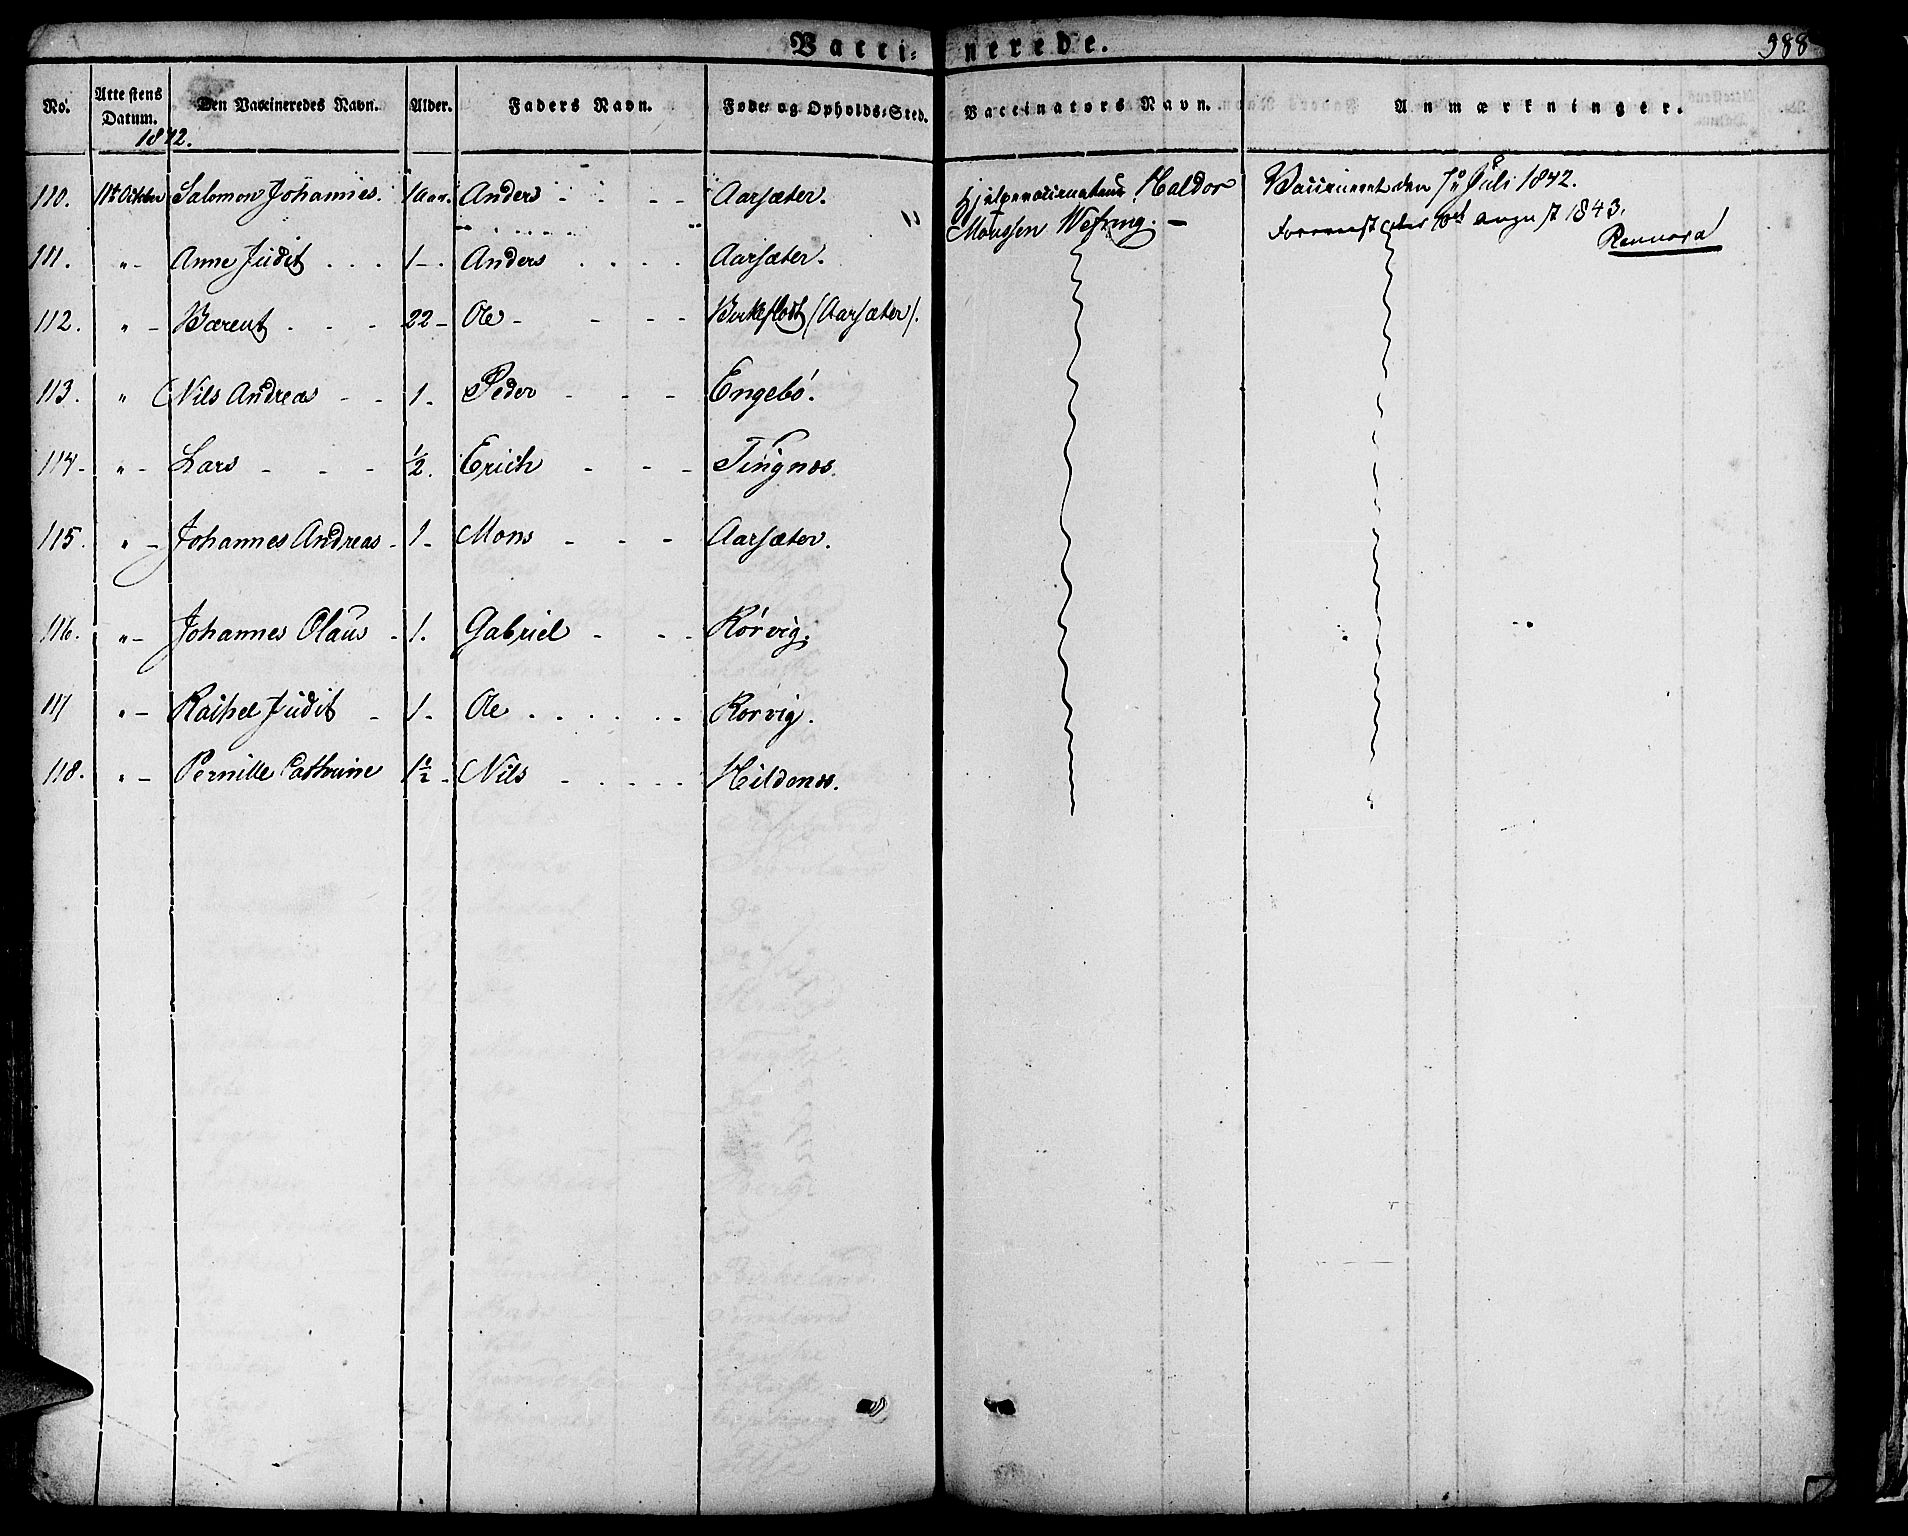 Vacci- nerede.
388
No. Attestens Datum. Den Vaccineredes Navn. Alder. Faders Navn. Føde- og Opholds-Sted. Vaccinators Navn. Anmærkninger.
1842.
110. 11te Octbr Salomon Johannes. 1 aar. Anders - - - - Aarsæter. Hjelpevaccinateur Haldor Vaccineret den 7de Juli 1842.
" Monssen Wefring. — august 1843.
111. " - Anne Judit . . . 1 - . Anders . . . . Aarsæter.
112. " - Bærent . - - 22 - Ole - - - - (Aarsæter).
113. " Nils Andreas - - 1. - Peder - - - Engebø.
114 - " - Lars - - - 1/2. Erich - - - Tingnæs.
115. " - Johannes Andreas - 1. - Mons - - - Aarsæter.
116. " - Johannes Olaus - 1. Gabriel - - - Rørvig.
117 " - Rachel Judit - 1. - Ole . . . . - - Rørvig.
118. " - Pernille Cathrine 1 1/2 - Nils - . . . - Hildenæs.